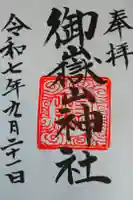 奉拝
御嶽神社
令和七年九月二十一日